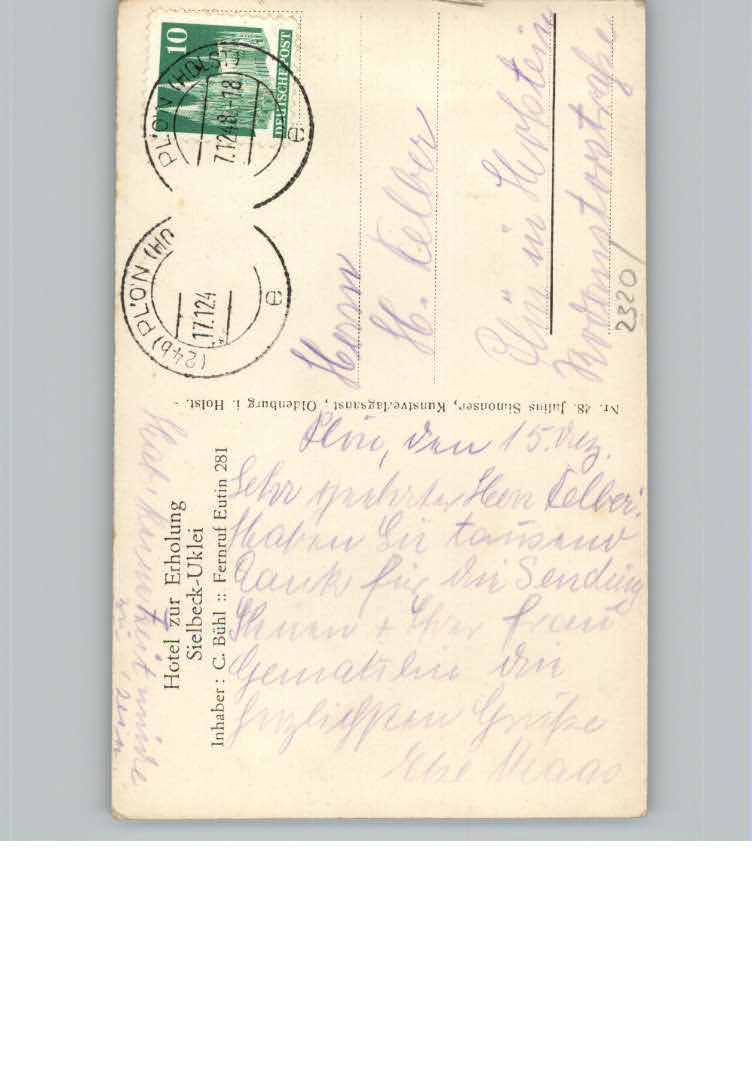 10
DEUTSCHE POST
PLÖN (HOLST)
7.12.48.-18
e
(24b) PLÖN (H
17.12.4
e
Herrn
H. Kelber
Plön in Holstein
Rodomstorstraße
2320/
Nr. 48. Julius Simonsen, Kunstverlagsanst., Oldenburg i. Holst. -
Hotel zur Erholung
Sielbeck-Uklei
Inhaber: C. Bühl :: Fernruf Eutin 281
Plön, den 15. Dez.
Sehr geehrter Herr Kelber.
Haben Sie tausend
Dank für die Sendung
Ihnen + Ihrer Frau
Gemahlin die
herzlichsten Grüße
Else Maas